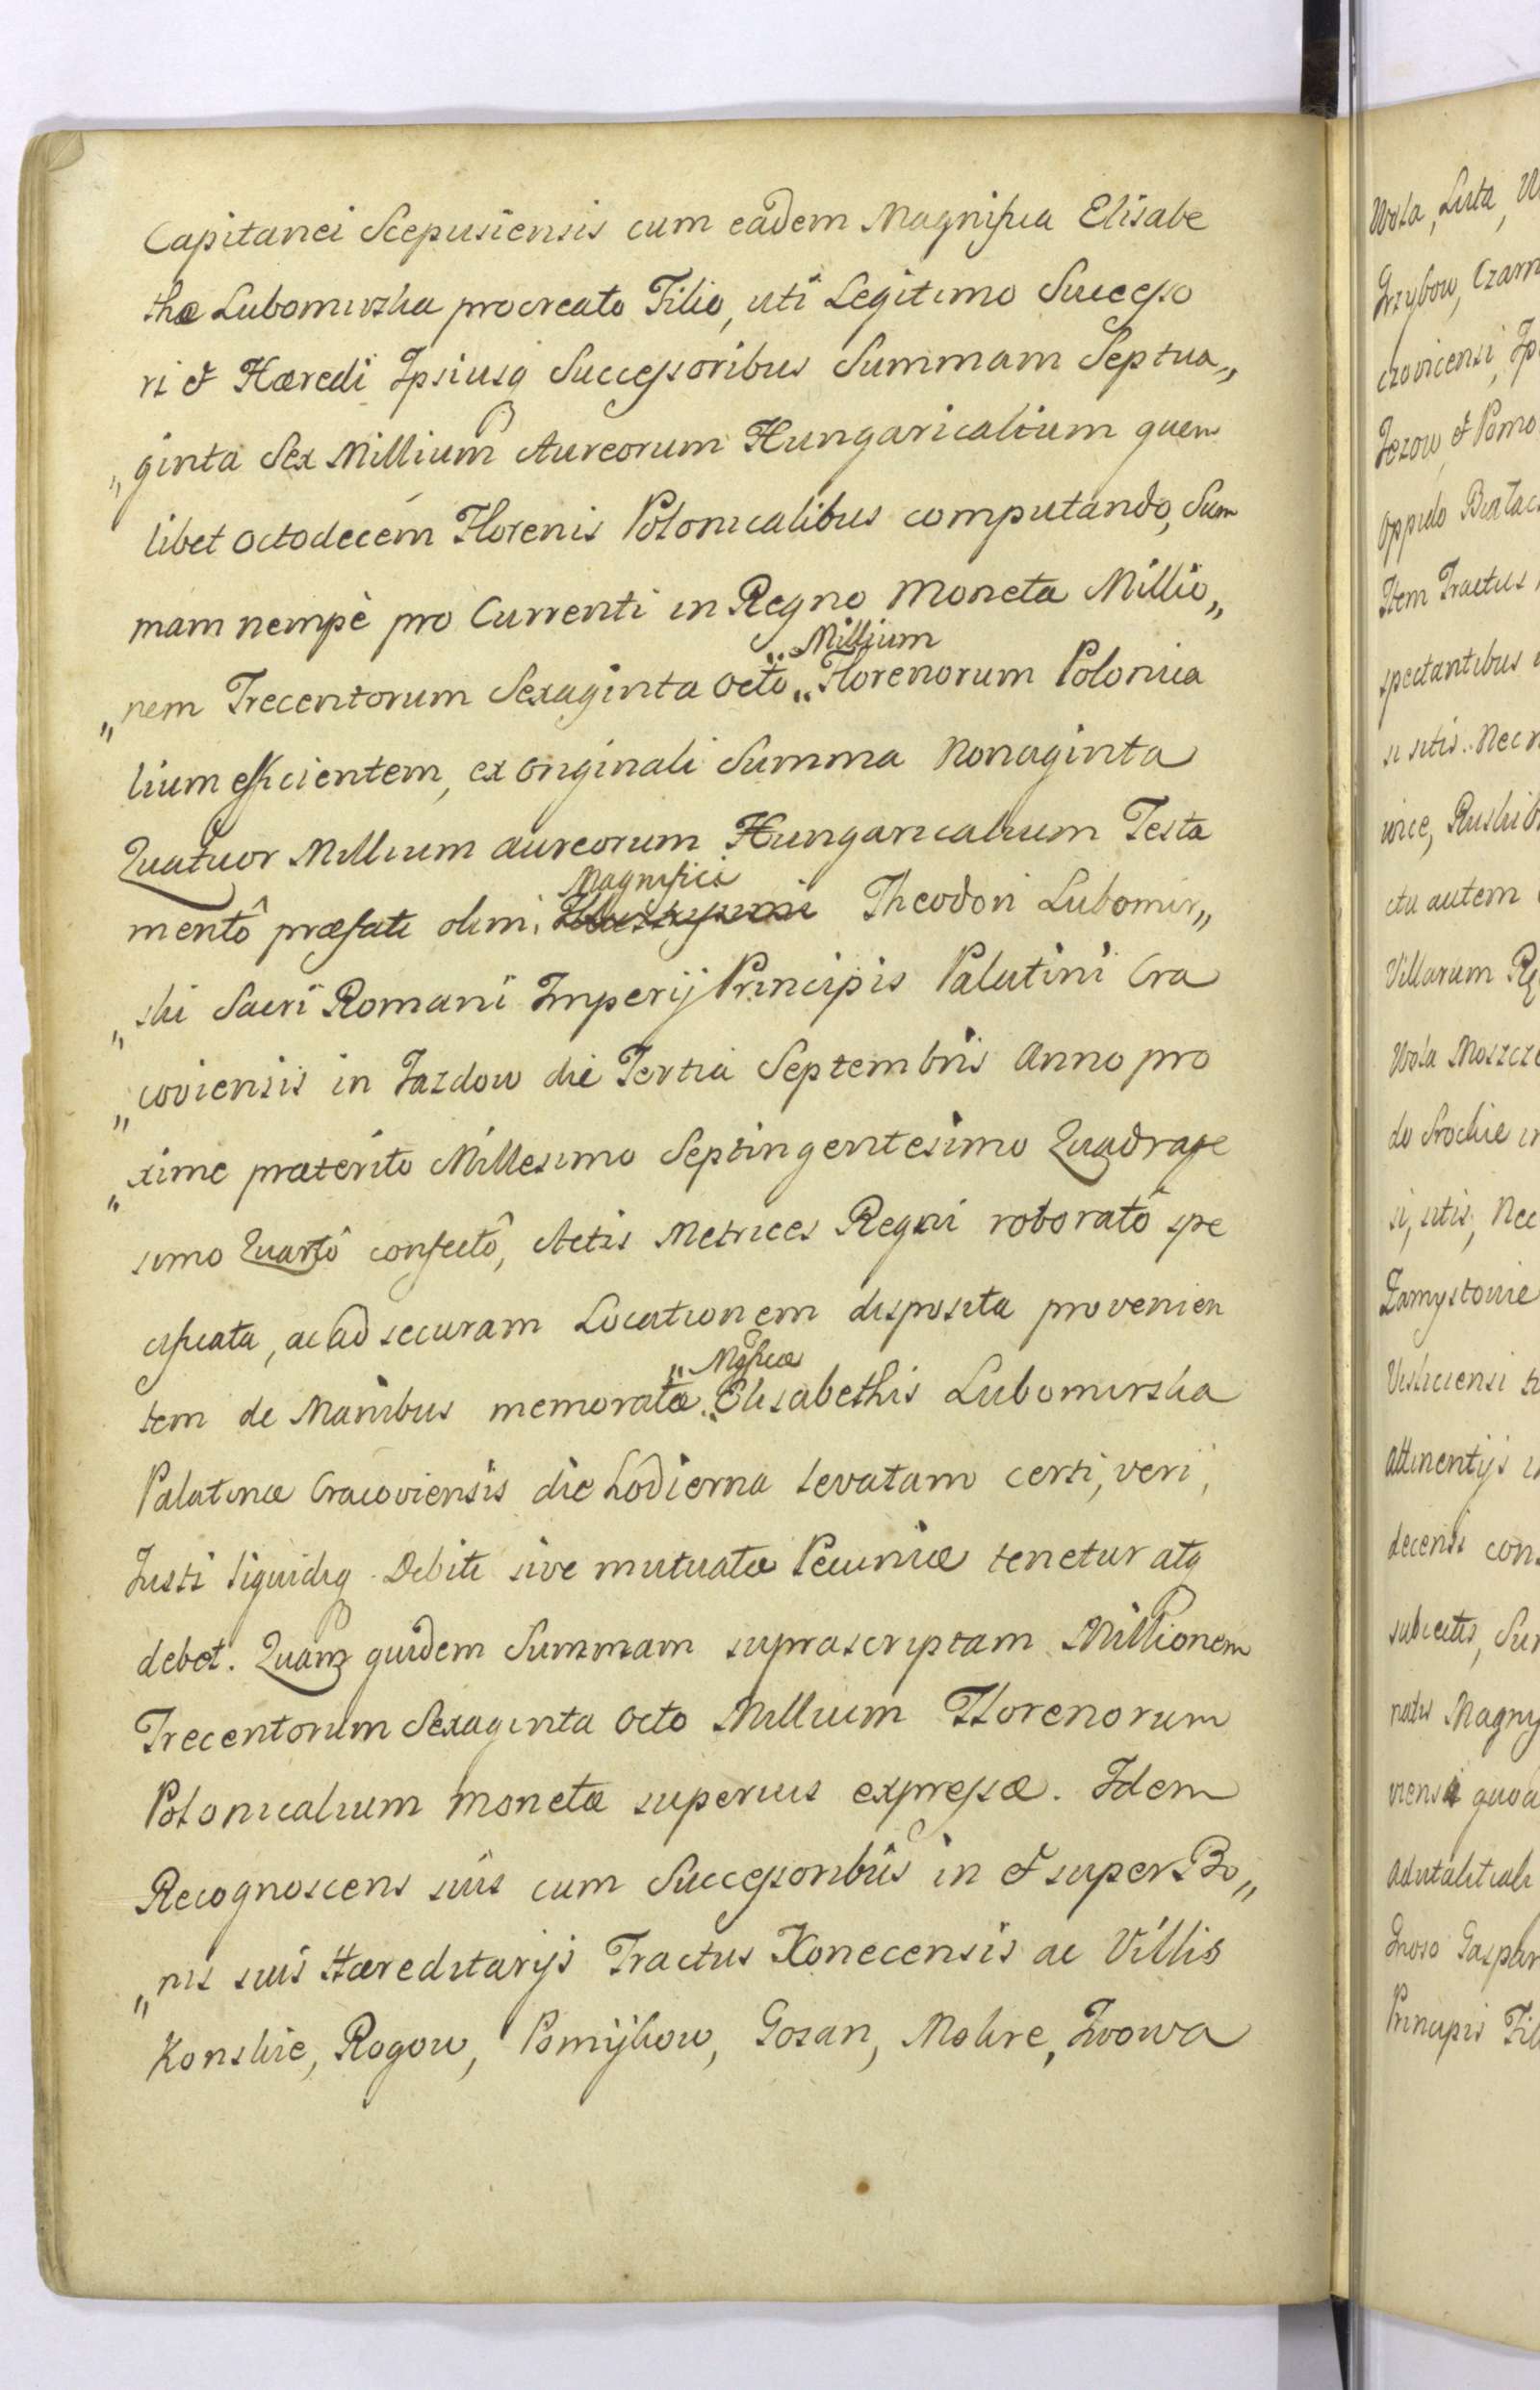 Capitanei Scepusiensis cum eadem Magnifica Elisabe
tha Lubomirska procreato Filio, uti Legitimo Successo
ri & Hæredi Ipsiusq Successoribus Summam Septua„
„ginta Sex Millium Aureorum Hungaricalium quem
libet octodecem Florenis Polonicalibus computando, Sum
mam nempè pro Currenti in Regno Moneta Millio„
„ Millium
„nem Trecentorum Sexaginta octo „ Florenorum Polonica
lium efficientem, ex originali Summa Nonaginta
Quatuor Millium aureorum Hungaricalium Testa
Magnifici
mentô præfati olim Theodori Lubomir„
„ski Sacri Romani Imperij Principis Palatini Cra
„coviensis in Jazdow die Tertia Septembris Anno pro
„xime præterito Millesimo Septingentesimo Quadrage
simo Quartô confectô, Actis Metrices Regni roboratô spe
cificata, ac ad securam Locationem disposita provenien
„ Mgficæ
tem de Manibus memoratæ „ Elisabethis Lubomirska
Palatinæ Cracoviensis die hodierna levatam certi, veri,
Justi liquidiq Debiti sive mutuatæ Pecuniæ tenetur atq
debet. Quam quidem Summam suprascriptam Millionem
Trecentorum Sexaginta octo Millium Florenorum
Polonicalium monetæ superius expressæ. Idem
Recognoscens suis cum Successoribus in & super Bo„
„nis suis Hæreditarijs Tractus Konecensis ac Villis
Konskie, Rogow, Pomijkow, Gosan, Mokre,
Wola,
Grzybow,
Oppido
Item Tractus
spectantibus
si sitis. Nec
ctu autem
Villarum
Wola
si, sitis, Nec
attinentijs
decensi
natis
Principis